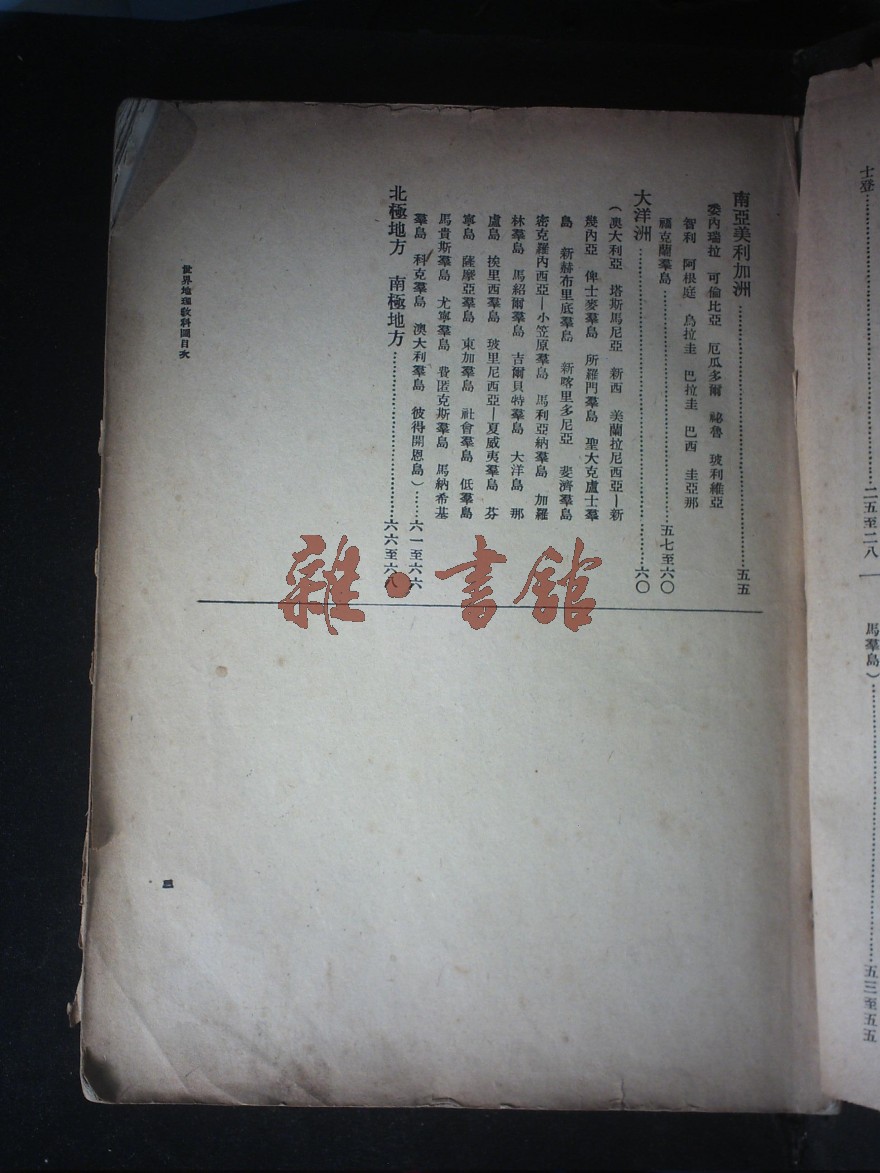 士登……二五至二八
馬羣島)……五三至五五
南亞美利加洲……五五
委內瑞拉 可倫比亞 厄瓜多爾 祕魯 玻利維亞
智利 阿根庭 烏拉圭 巴拉圭 巴西 圭亞那
福克蘭羣島……五七至六〇
大洋洲……六〇
(澳大利亞 塔斯馬尼亞 新西 美蘭拉尼西亞—新
幾內亞 俾士麥羣島 所羅門羣島 聖大克盧士羣
島 新赫布里底羣島 新喀里多尼亞 斐濟羣島
密克羅內西亞—小笠原羣島 馬利亞納羣島 加羅
林羣島 馬紹爾羣島 吉爾貝特羣島 大洋島 那
盧島 挨里西羣島 玻里尼西亞—夏威夷羣島 芬
寧島 薩摩亞羣島 東加羣島 社會羣島 低羣島
馬貴斯羣島 尤寧羣島 費匿克斯羣島 馬納希基
羣島 科克羣島 澳大利羣島 彼得開恩島)……六一至六六
北極地方 南極地方……六六至六八
世界地理教科圖目次
三
雜·書館